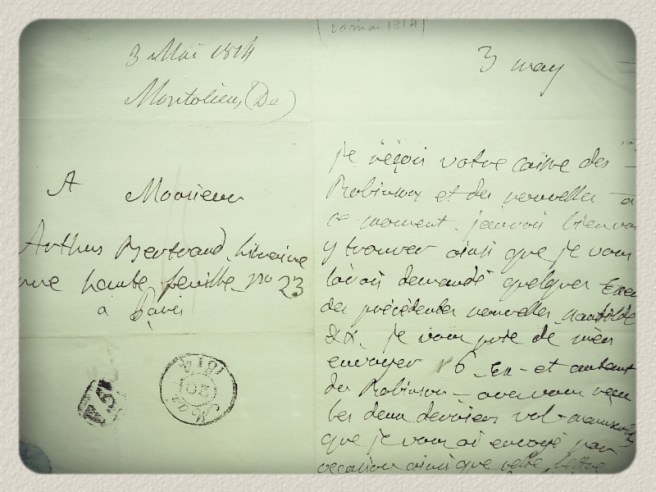 3 Mai 1814
Montolieu (De)
A Monsieur
Arthus Bertrand, libraire
rue haute feuille no 23
a Paris
1814
3 may
je reçois votre caisse des
Robinson et des nouvelles a
ce moment. j'aurois bien
y trouver ainsi que je vous
l'avois demandé quelques
des précédentes nouvelles
&&. je vous prie de m'en
envoyer 6 Ex- et autant
du Robinson - avez vous reçu
les deux derniers vol-
que je vous ai envoyé par
occasion ainsi que lettre